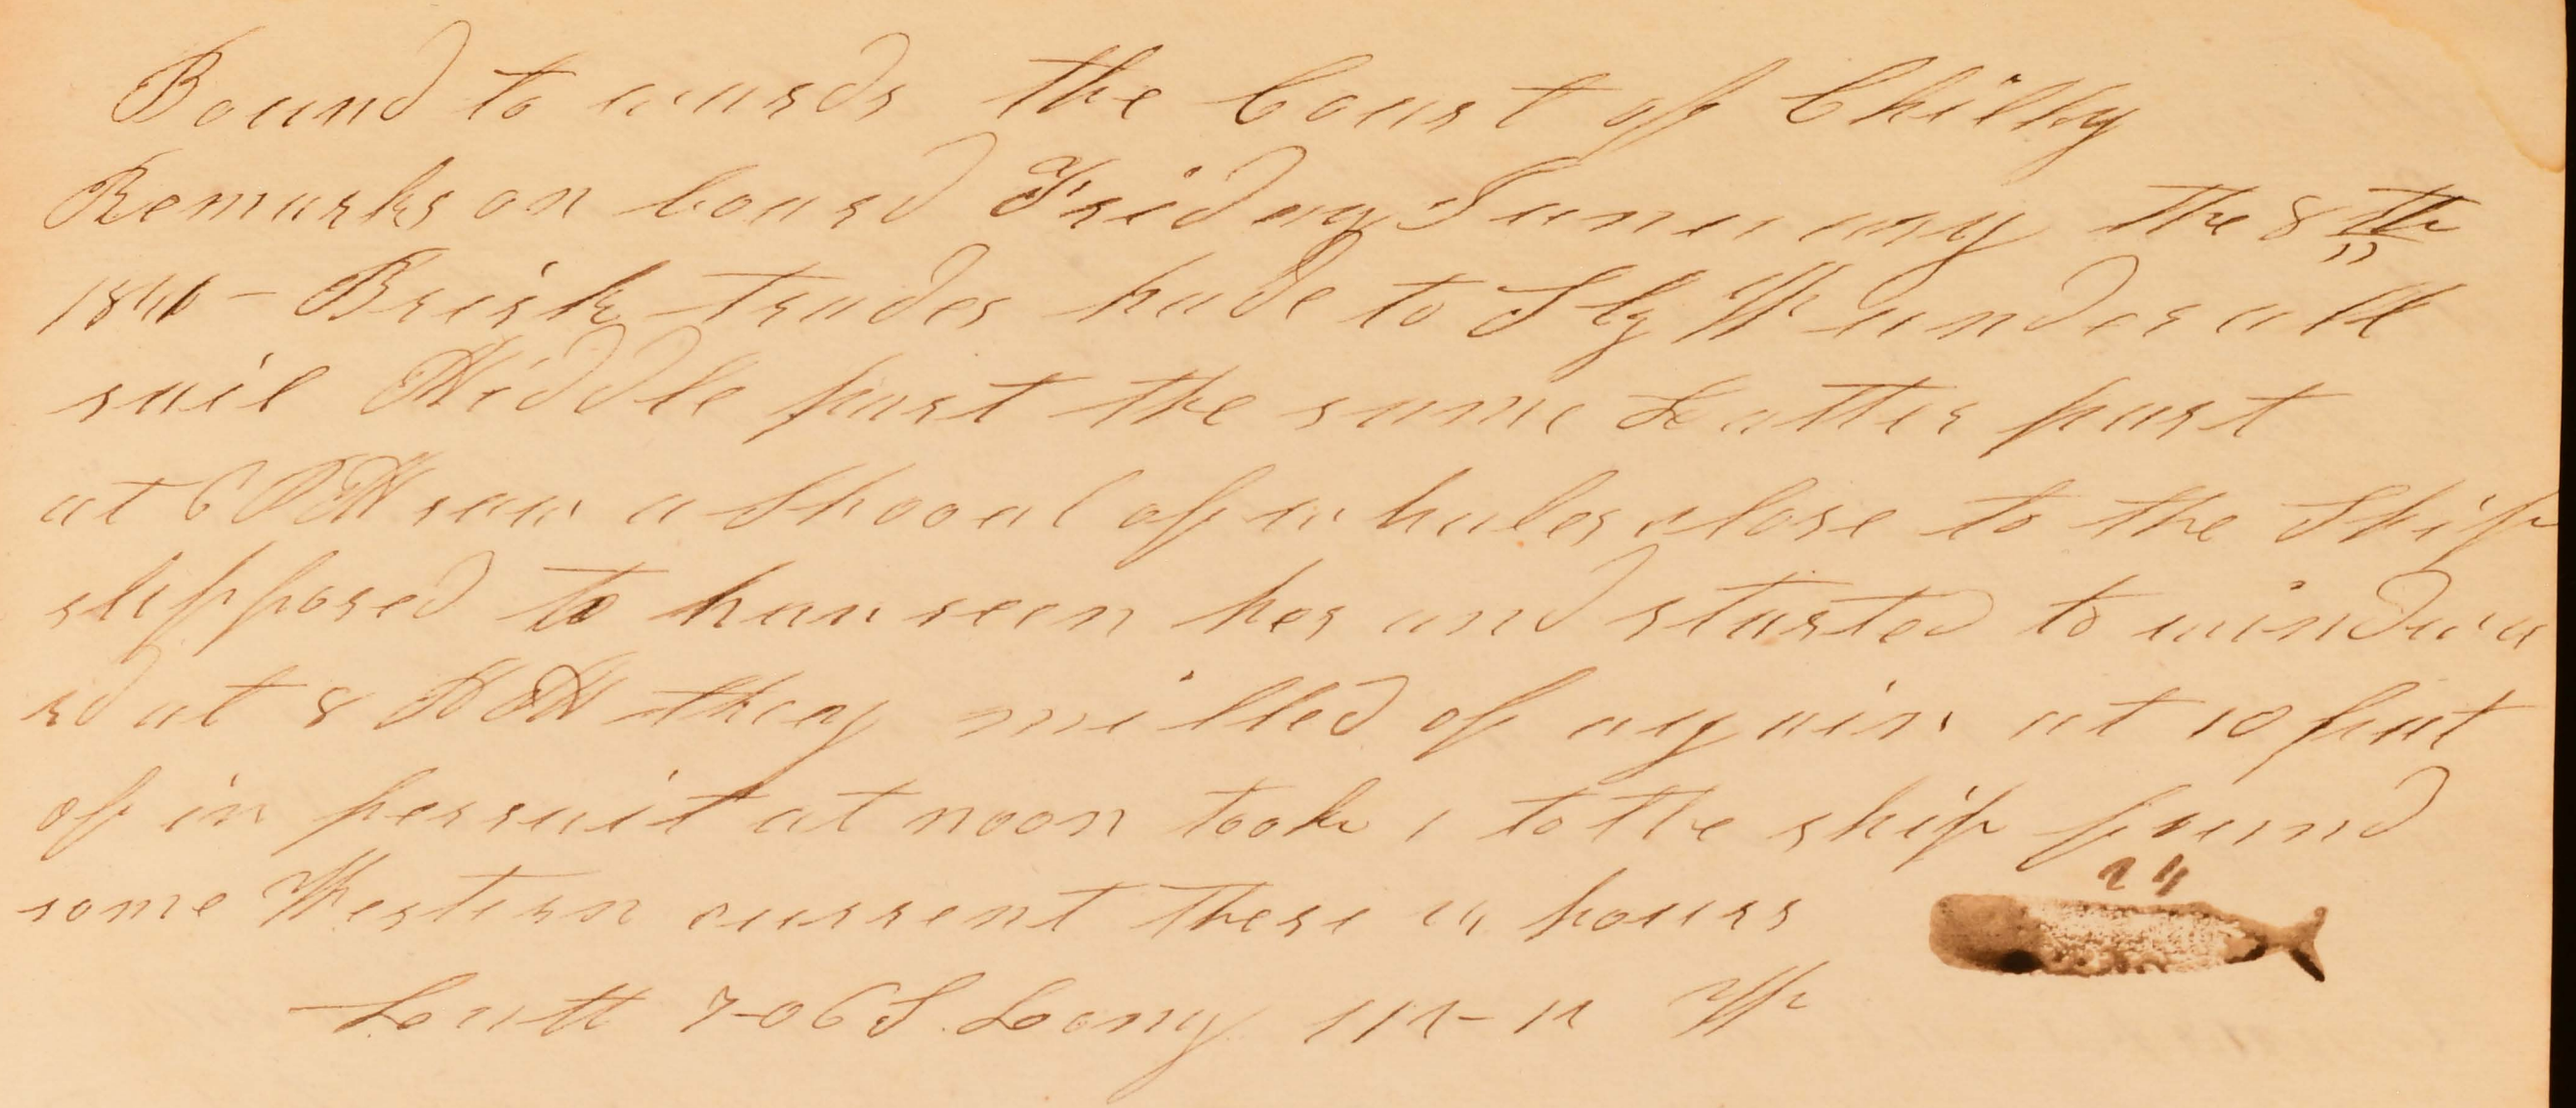 Bound to wards the Coarst off Chilly
Remarks on board Friday Januuary the 8th
Brisk trades hade to Sly W under all
sail Middle part the same Latter part
at 6 saw a Shooal of whales close to the Ship
slipposed to hav seen her and started to windwa
rd at 8 AM they milled of again at 10 put
of in persuit at noon took 1 to the ship found
some Western current these hours
24
Latt 7-06 S Long W